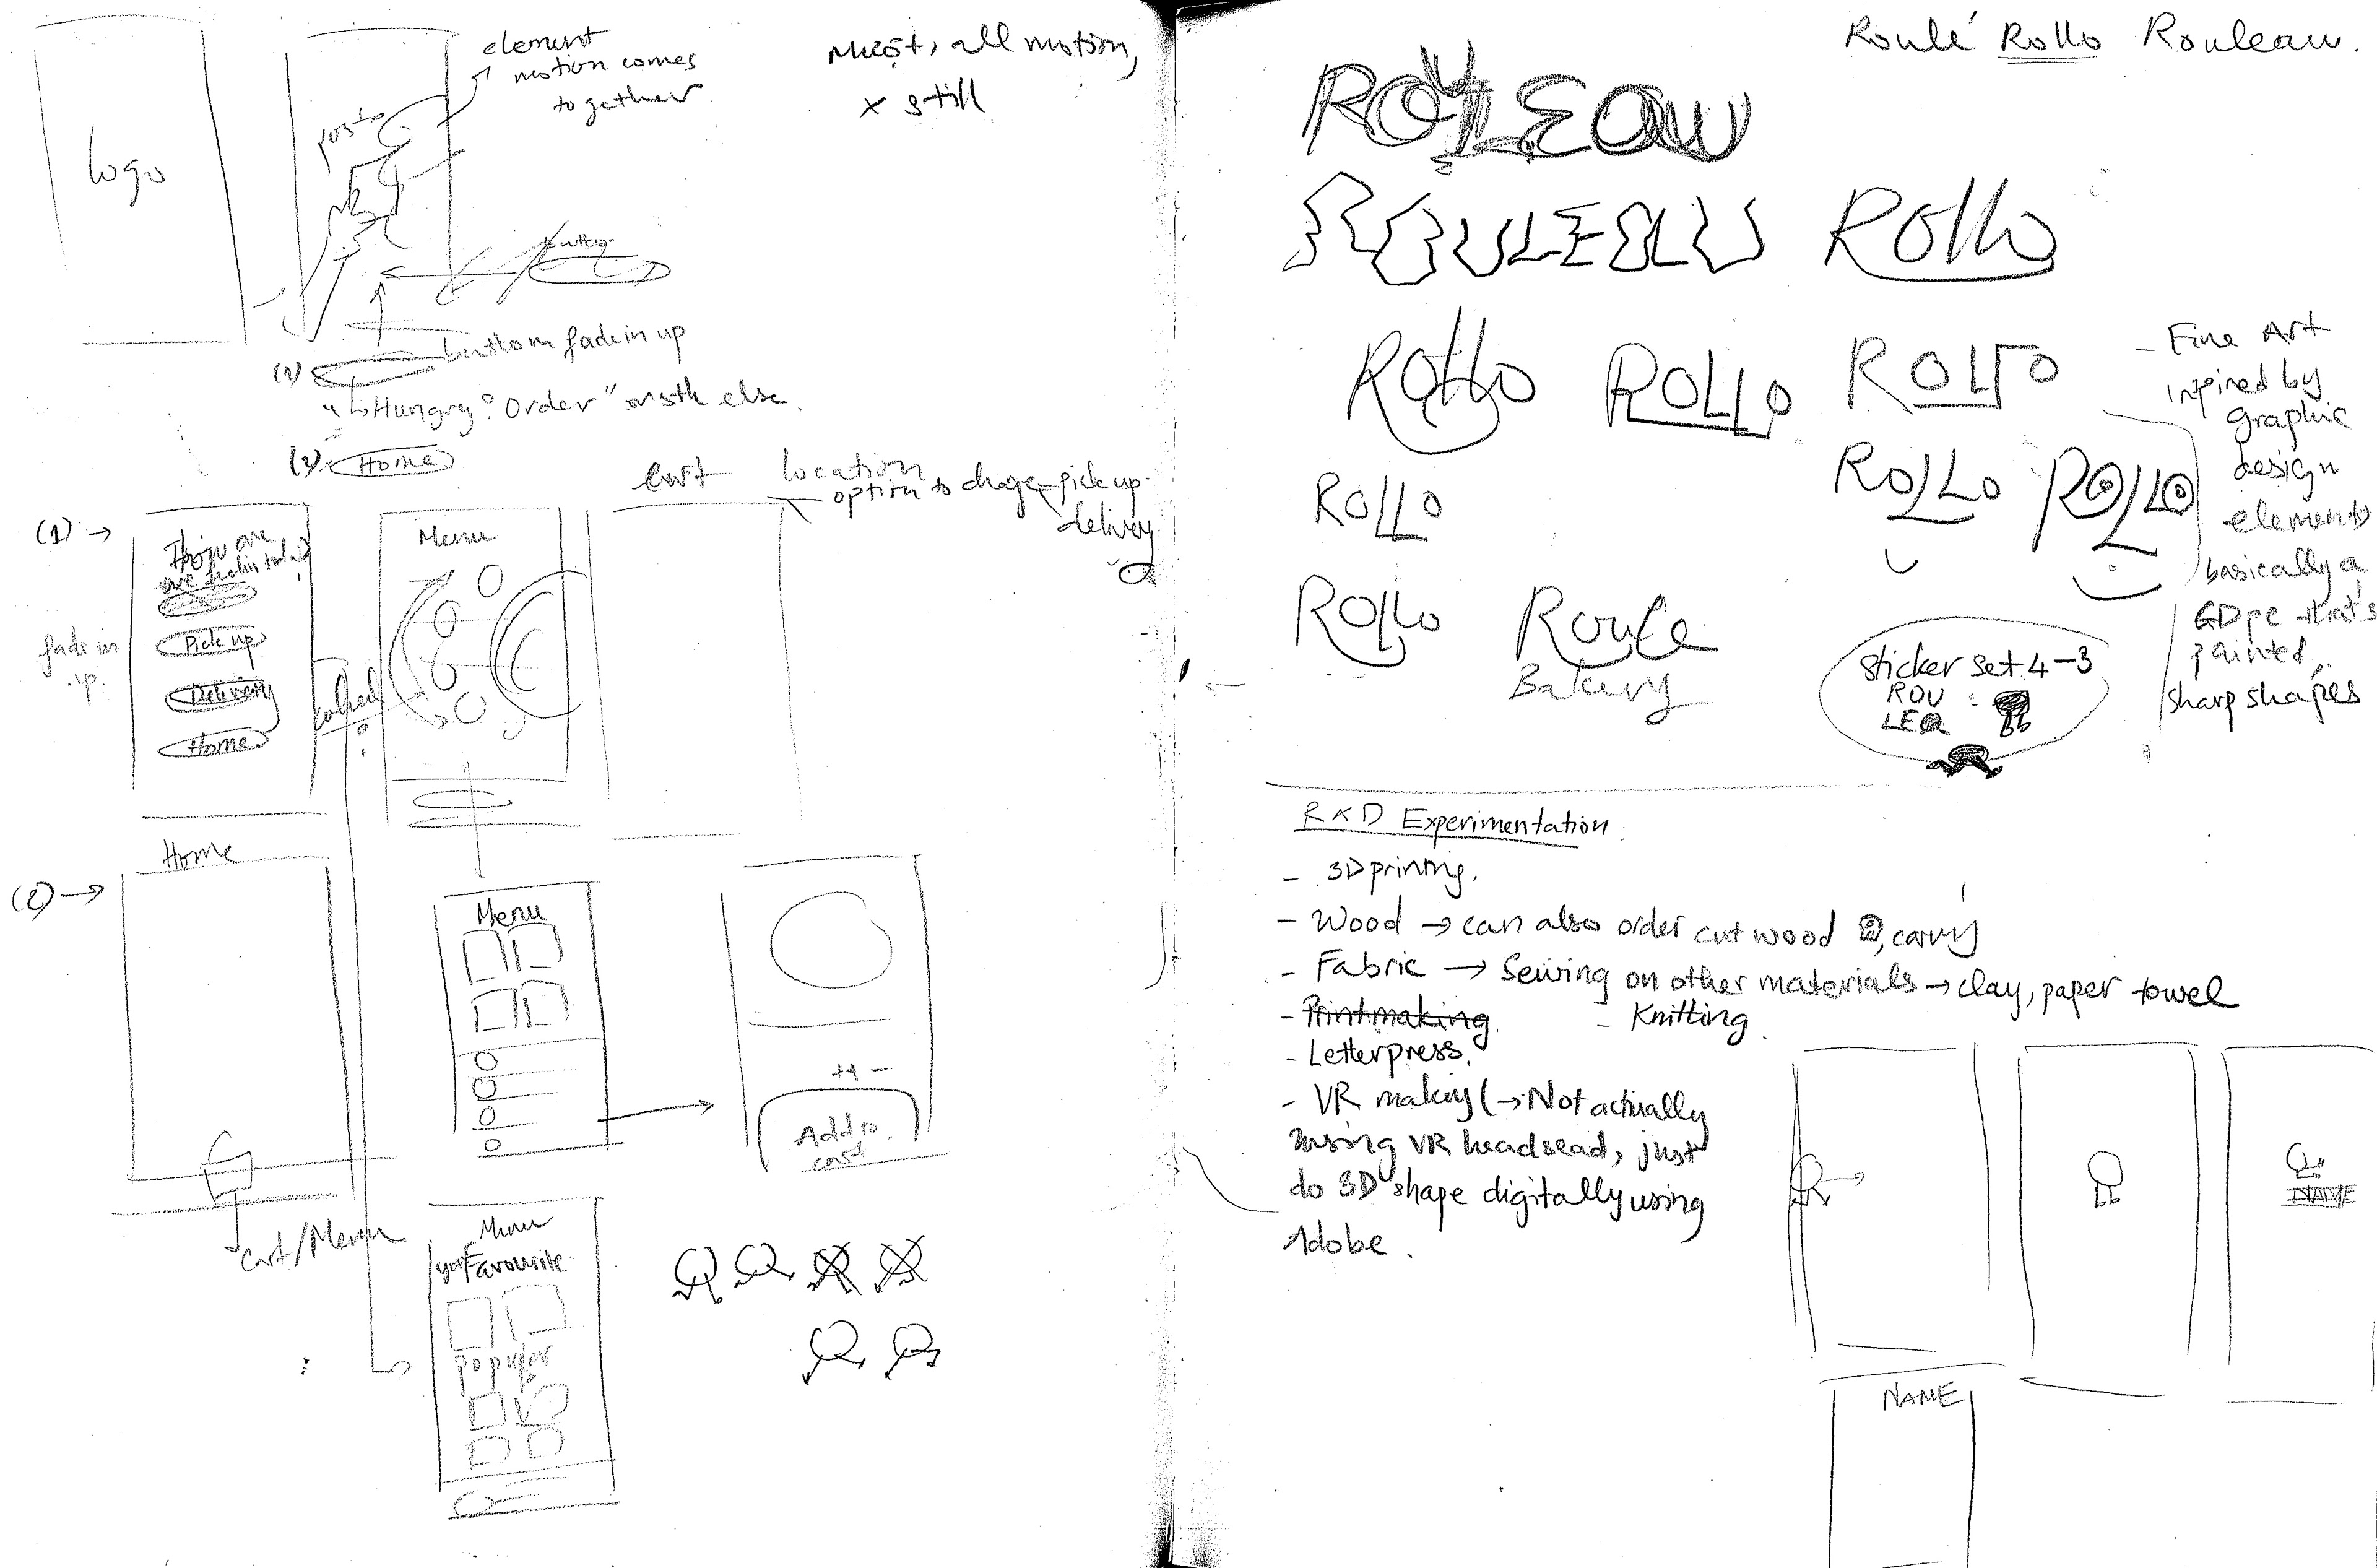 logo
element
motion comes
together
all motion,
x still
button
fade in up
(2)
"Hungry? Order" or sth else.
(3) Home
(1) →
fade in
up
Pick up
Delivery
Home
Menu
Cart
location
option to
pick up
delivery
(2) →
Home
Cart/Menu
Menu
Add to
cart
Menu
your Favourite
popular
Roulé Rollo Rouleau.
ROULEAU
ROULEAU
Rollo
Rollo
ROLLO
ROLLO
ROLLO
ROLLO
ROLLO
ROLLO
Roule
Bakery
- Fine Art
inpired by
graphic
design
elements
basically a
GD pc that's
painted,
sharp shapes
Sticker set 4-3
ROU
LEA
R&D Experimentation:
- 3D printing.
- Wood → can also order cut wood
- Fabric → Sewing on other materials → clay, paper towel
- Printmaking
- Knitting
- Letterpress.
- VR making (→ Not actually
using VR headsead, just
do 3D shape digitally using
Adobe.
NAME
NAME